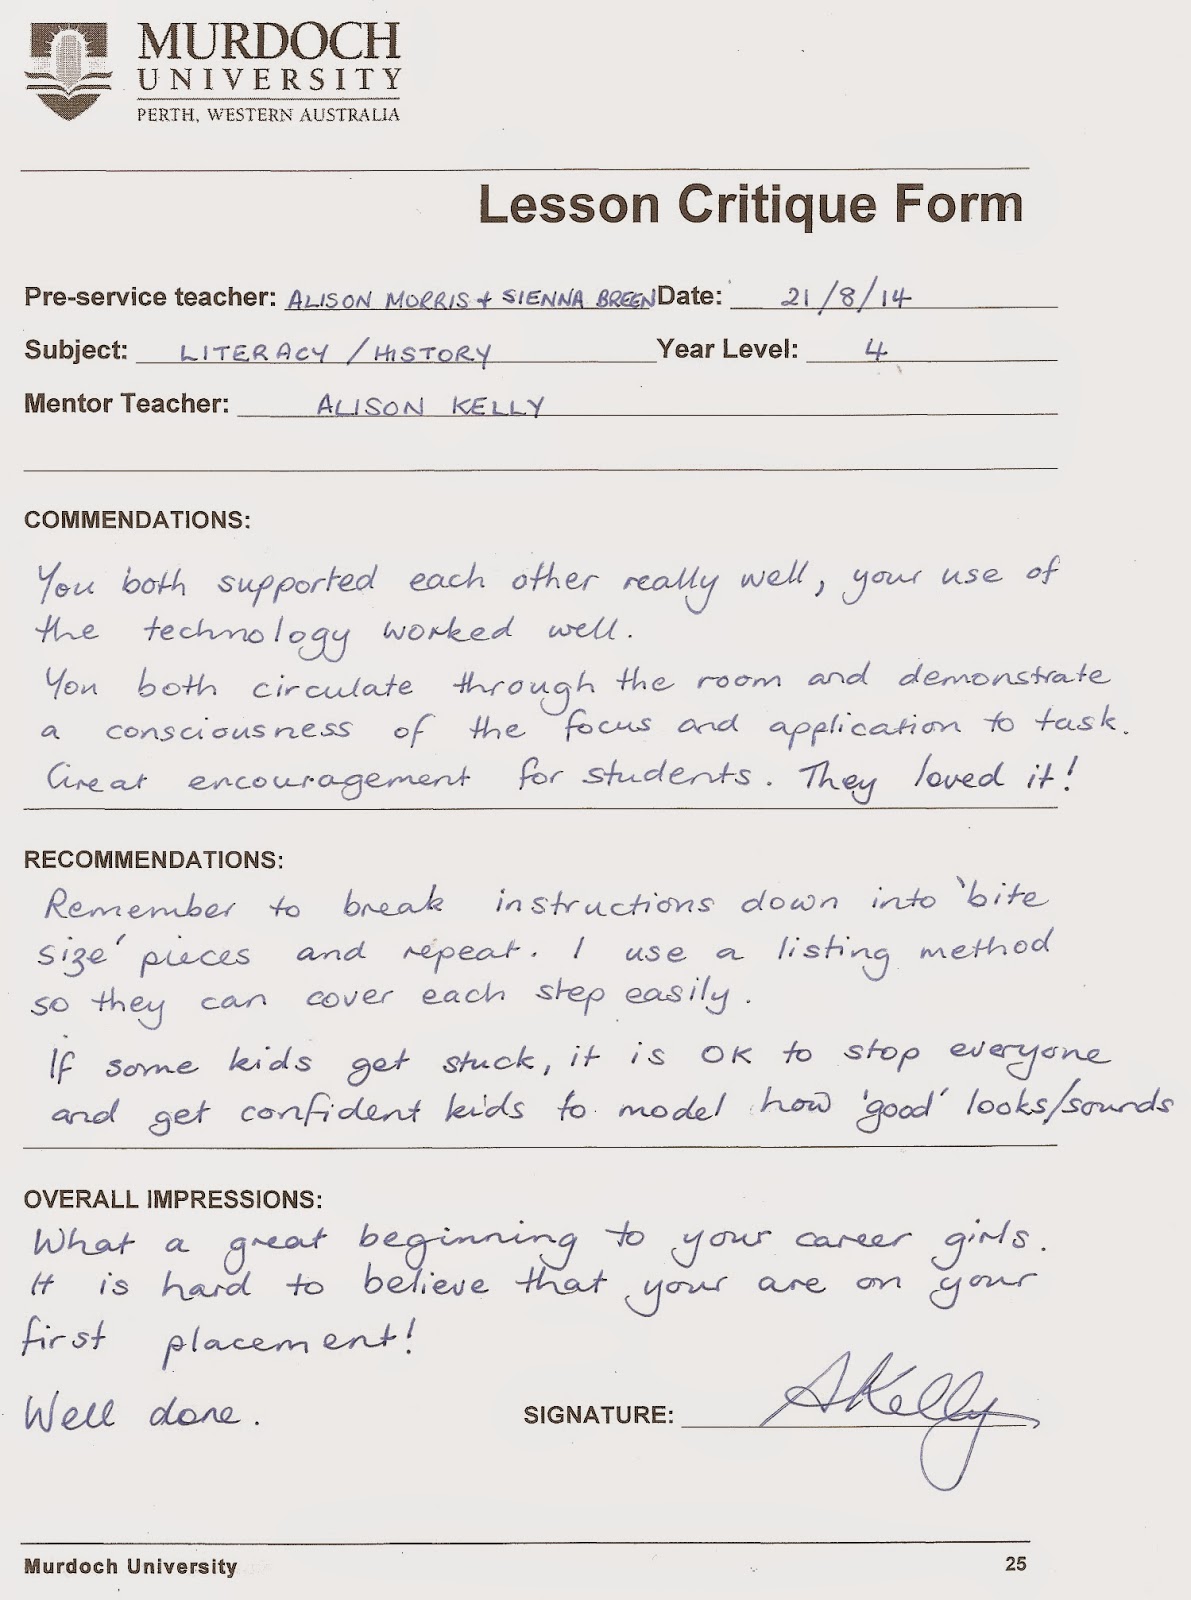 MURDOCH
UNIVERSITY
PERTH, WESTERN AUSTRALIA
Lesson Critique Form
Pre-service teacher: ALISON MORRIS + SIENNA BREEN Date: 21/8/14
Subject: LITERACY / HISTORY Year Level: 4
Mentor Teacher: ALISON KELLY
COMMENDATIONS:
You both supported each other really well, your use of
the technology worked well.
You both circulate through the room and demonstrate
a consciousness of the focus and application to task.
Great encouragement for students. They loved it!
RECOMMENDATIONS:
Remember to break instructions down into 'bite
size' pieces and repeat. I use a listing method
so they can cover each step easily.
If some kids get stuck, it is OK to stop everyone
and get confident kids to model how 'good' looks/sounds
OVERALL IMPRESSIONS:
What a great beginning to your career girls.
It is hard to believe that your are on your
first placement!
Well done. SIGNATURE: AKelly
Murdoch University 25